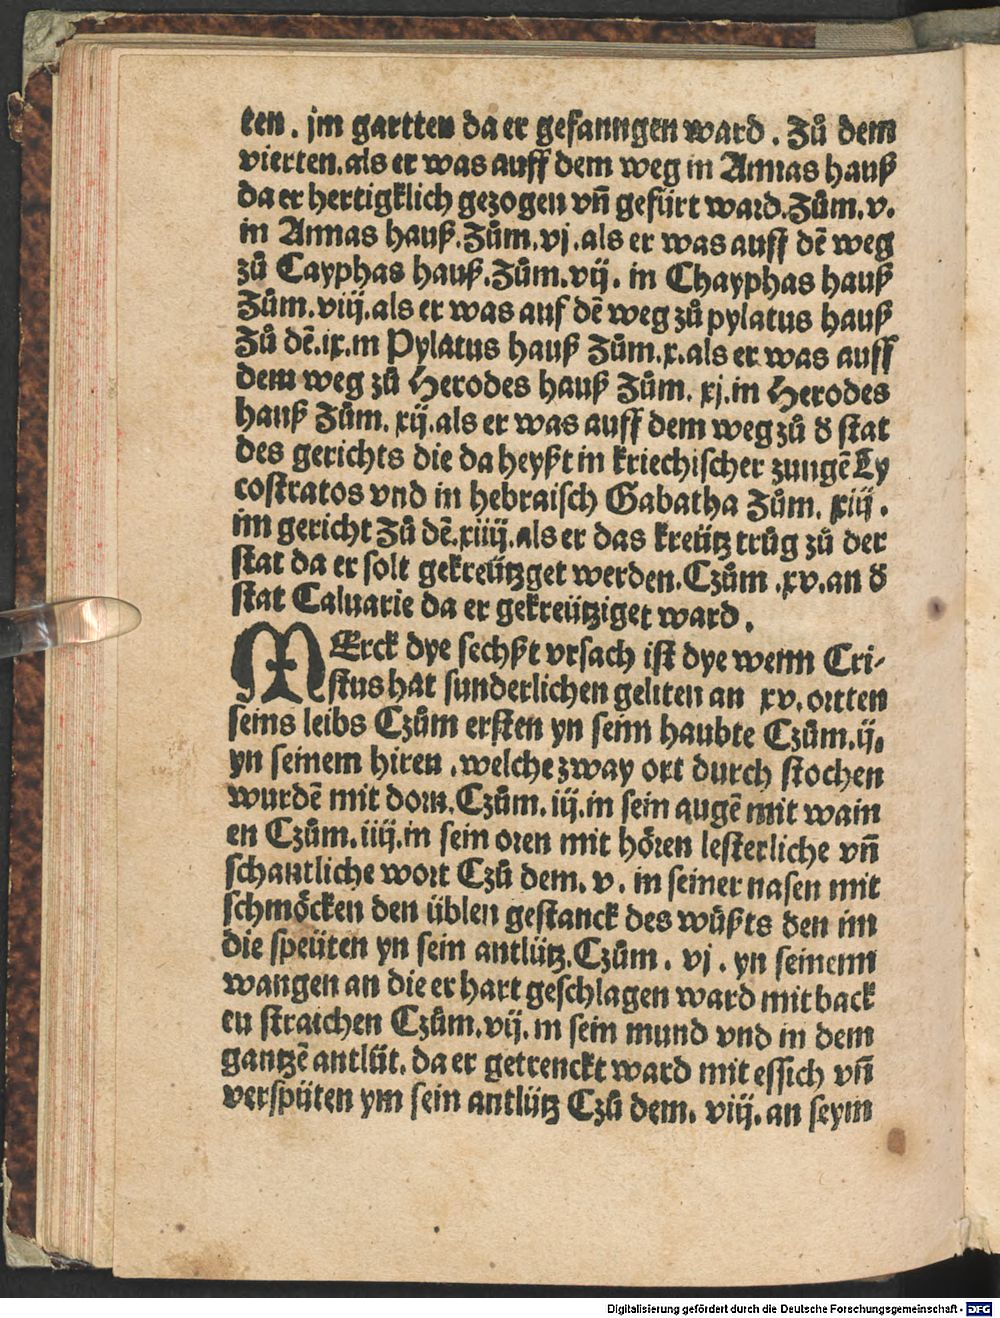 ten . jm gartten da er gefanngen ward . Zů dem
vierten.als er was auff dem weg in Annas hauß
da er hertigklich gezogen vñ gefürt ward.Zům.v.
in Annas hauß.Zům.vj.als er was auff dē weg
zů Cayphas hauß.Zům.vij. in Chayphas hauß
Zům.viij.als er was auf dē weg zů pylatus hauß
Zů dē.ix.in Pylatus hauß Zům.x.als er was auff
dem weg zů Herodes hauß Zům. xj.in Herodes
hauß Zům. xij.als er was auff dem weg zů d̕ stat
des gerichts die da heyßt in kriechischer zungē Ly
costratos vnd in hebraisch Gabatha Zům. xiij .
im gericht Zů dē.xiiij.als er das kreütz trůg zů der
stat da er solt gekreützget werden.Czům .xv.an d̕
stat Caluarie da er gekreütziget ward .
MErck dye sechßt vrsach ist dye wenn Cri-
stus hat sunderlichen geliten an xv. ortten
seins leibs Czům ersten yn seim haubte Czům.ij.
yn seinem hiren .welche zway ort durch stochen
wurdē mit dorn.Czům. iij.in sein augē mit wain
en Czům.iiij.in sein oren mit hören lesterliche vñ
schantliche wort Czů dem. v. in seiner nasen mit
schmöcken den üblen gestanck des wůßts den im
die speüten yn sein antlütz.Czům. vj . yn seinenn
wangen an die er hart geschlagen ward mit back
en straichen Czům.vij. in sein mund vnd in dem
gantzē antlüt. da er getrenckt ward mit essich vñ
verspüten ym sein antlütz Czů dem. viij. an seym
Digitalisierung gefördert durch die Deutsche Forschungsgemeinschaft - DFG